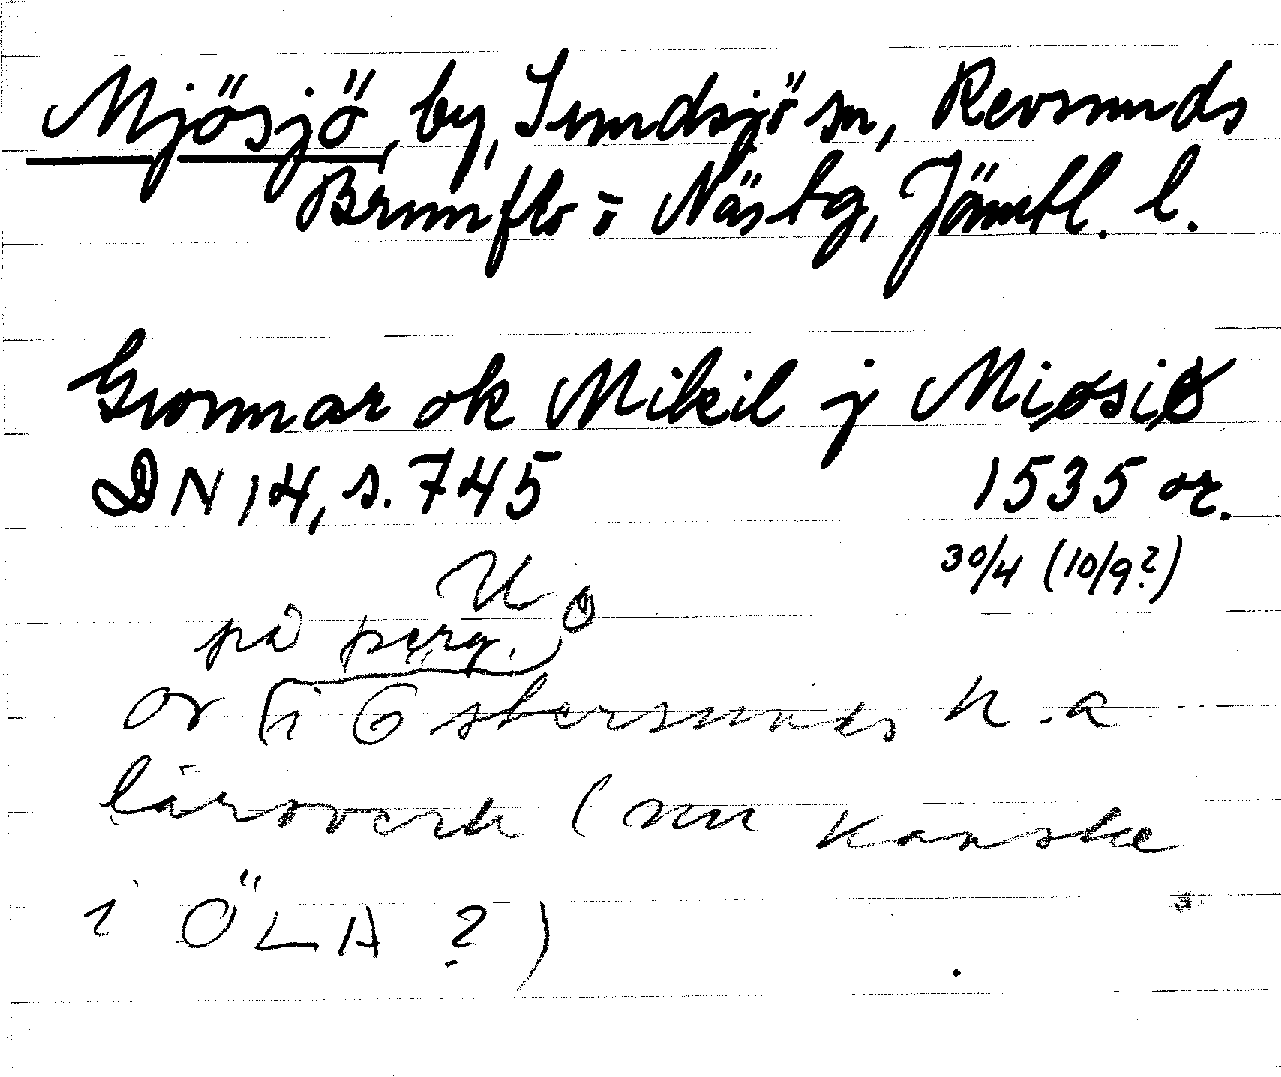 Mjösjö, by, Sundsjö sn, Revsunds
Brunflo o Näs tg, Jämtl. l.
Gwnnar ok Mikil j Miøsiø
DN 14, s. 745 1535 or.
30/4 (10/9?)
U
på perg.
or (i Östersunds h.a
läroverk (nu kanske
i ÖLA ?)